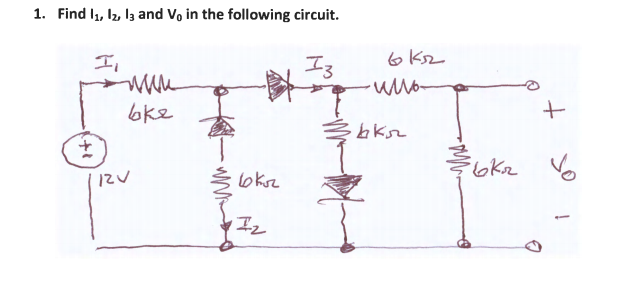 1. Find I₁, I₂, I₃ and V₀ in the following circuit.
I₁
I₃
6 KΩ
6KΩ
+
6KΩ
+
-
12V
6KΩ
6KΩ
V₀
I₂
-